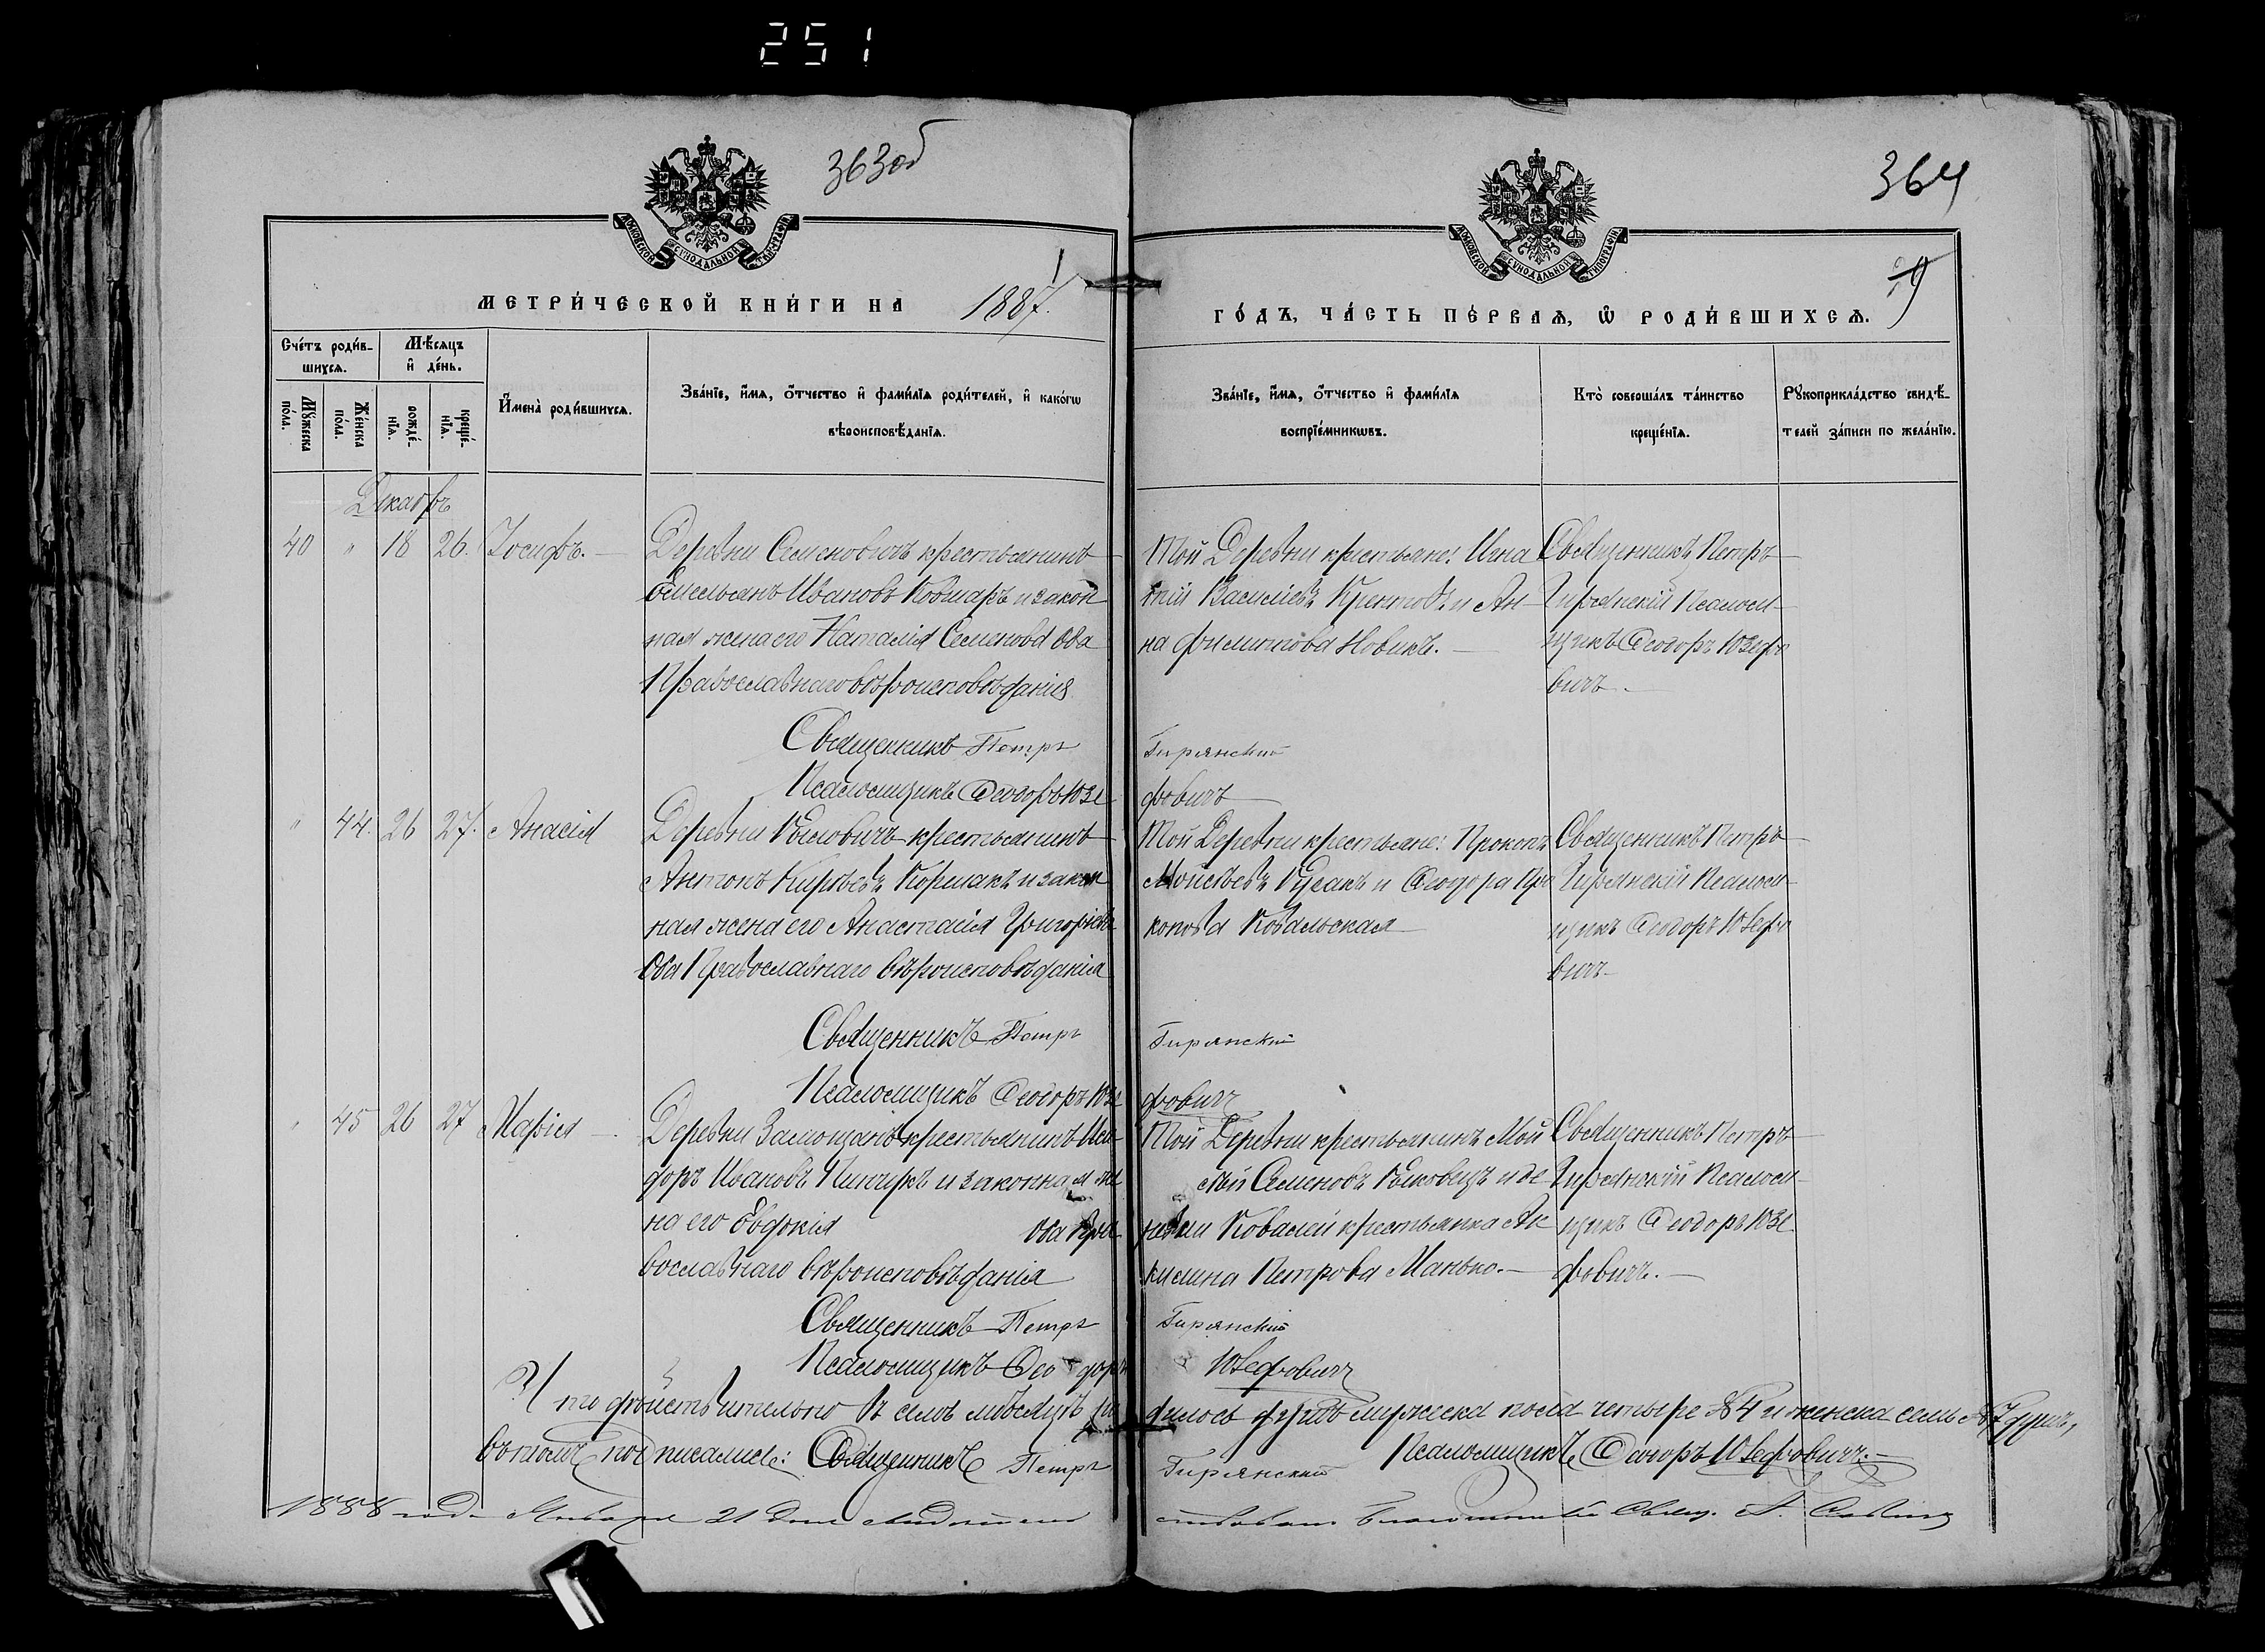 251
363об
364
МОСКОВСКОЙ СѴНОДАЛЬНОЙ ТИПОГРАФІИ
МОСКОВСКОЙ СѴНОДАЛЬНОЙ ТИПОГРАФІИ
МЕТРИ́ЧЕСКОЙ КНИ́ГИ НА 1887.
ГО́ДЪ, ЧА́СТЬ ПЕ́РВАѦ, Ѽ РОДИ́ВШИХСѦ.
Сче́тъ роди́в-
шихсѧ.
Мѣ́сѧцъ
и҆ де́нь.
Мꙋ́жеска
по́ла.
Же́нска
по́ла.
рожде́-
нїѧ.
креще́-
нїѧ.
И҆мена̀ роди́вшихсѧ.
Зва́нїе, и҆́мѧ, ѻ҆́тчество и҆ фами́лїѧ роди́телей, и҆ како́гѡ
вѣроисповѣ́данїѧ.
Зва́нїе, и҆́мѧ, ѻ҆́тчество и҆ фами́лїѧ
воспрїе́мникѡвъ.
Кто̀ соверша́лъ та́инство
креще́нїѧ.
Рꙋкоприкла́дство свидѣ́-
телей за́писи по жела́нїю.
Декабрь
40 " 18 26. Іосифъ.
Деревни Семеновичъ крестьянинъ
Емельянъ Ивановъ Ковшаръ и закон
ная жена его Наталія Семенова оба
Православнаго вѣроисповѣданія
Той Деревни крестьяне: Игна
тій Василіевъ и Ан-
на Филипова Новикъ.
Священникъ Петръ
Гирянскій Псалом-
щикъ Ѳеодоръ Юзефо
вичъ.
Священникъ Петръ Гирянскій
Псаломщикъ Ѳеодоръ Юзе фовичъ
" 44. 26 27. Анасія
Деревни крестьянинъ
Антонъ Кормакъ и закон
ная жена его Анастасія Григорьева
Оба Православнаго вѣроисповѣданія
Той Деревни крестьяне: Прокопъ
Мойсѣевъ Гусакъ и Ѳеодора Про
копова Ковальская
Священникъ Петръ
Гирянскій Псалом-
щикъ Ѳеодоръ Юзефо
вичъ
Священникъ Петръ Гирянскій
Псаломщикъ Ѳеодоръ Юзе фовичъ
" 45 26 27 Марія
Деревни Замощанъ крестьянинъ Иси-
доръ Ивановъ Пинчукъ и законная же
на его Евдокія оба Пра
вославнаго вѣроисповѣданія
Той Деревни крестьянинъ Мой
сѣй Семеновъ и де
ревни Ковалей крестьянка Ак
килина Петрова Манько.
Священникъ Петръ
Гирянскій Псалом-
щикъ Ѳеодоръ Юзе
фовичъ.
Священникъ Петръ Гирянскій
Псаломщикъ Ѳеодоръ Юзефовичъ
Что дѣйствительно въ семъ мѣсяцѣ ро дилось мужеска пола четыре №4 и женска семь №7 душъ,
въ томъ подписались: Священникъ Петръ Гирянскій Псаломщикъ Ѳеодоръ Юзефовичъ.
1888 года Января 21 дня Благочинный Свящ. А.